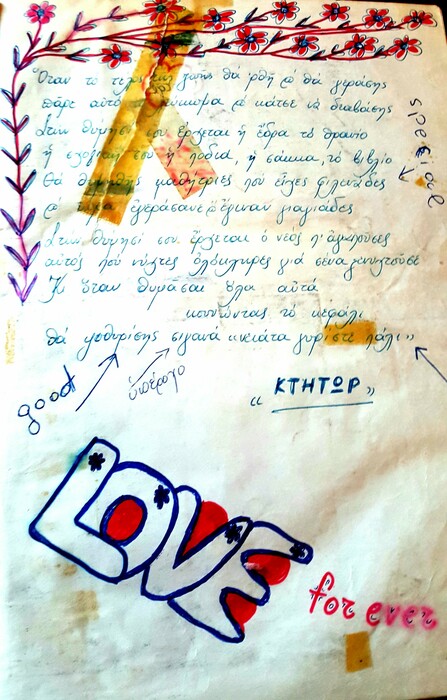 Όταν το τέλος της ζωής θα ρθη & θα γεράσης
πάρε αυτό το λεύκωμα & κάτσε να διαβάσης
Στην θύμηση σου έρχεται η έδρα το θρανίο
ή σχολική σου η ποδιά, ή σάκκα, το βιβλίο
Θα θυμηθής μαθήτριες που είχες φιλενάδες
& τώρα εγεράσανε & έγιναν γιαγιάδες
Στην θύμησί σου έρχεται ο νέος π' αγαπούσες
αυτός που νύχτες ολόκληρες για σένα ξενυχτούσε
Κι όταν θυμάσαι όλα αυτά
κουνώντας το κεφάλι
θα ψιθυρίσης σιγανά «νειάτα γυρίστε πάλι»
special
good
υπέροχο
"ΚΤΗΤΩΡ"
LOVE
for ever